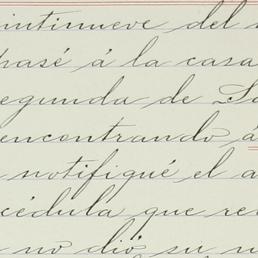 intinueve del
pasé á la casa
egunda de
encontrando á
notifiqué el a
cédula que re
no dió su